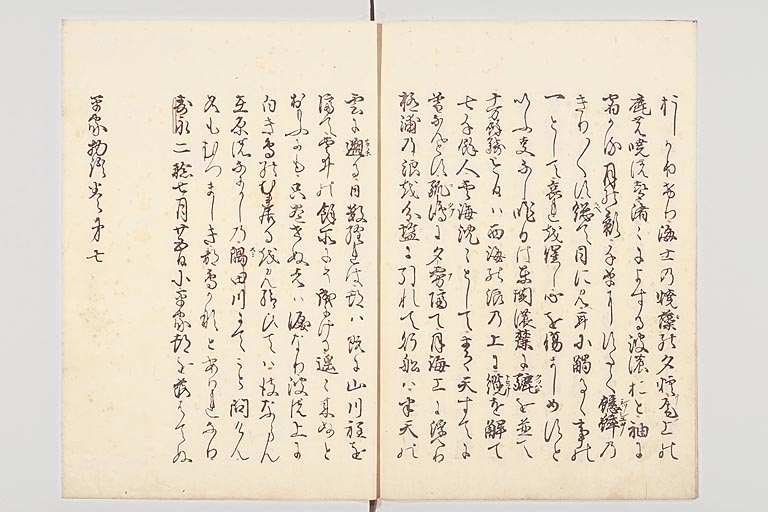 れしかりけり海士の焼藻の夕煙尾上の
鹿の暁の声渚々によする波の音袖に
宿かる月の影千草にすだく蟋蟀の
きりぎりす総て目に見耳に触るゝ事の
一として哀を催し心を傷ましめずと
いふ事なし昨日は東関の麓に轡を並て
十万余騎今日は西海の浪の上に纜を解て
七千余人雲海沈々として青天すでに
暮なんとす孤島に夕霧隔て月海上に浮べり
極浦の浪を分塩に引れて行船は半天の
雲に遡る日数経れば都は既に山川程を
隔て雲井の余所にぞ成にける遥々来ぬと
おもふにも只尽きぬ物は涙なり波の上に
白き鳥のむれ居るを見給ひては彼ならん
在原のなにがしの隅田川にてこと問けん
名もむつましき都鳥かなとあはれなり
寿永二年七月廿五日に平家都を落はてぬ
平家物語巻第七